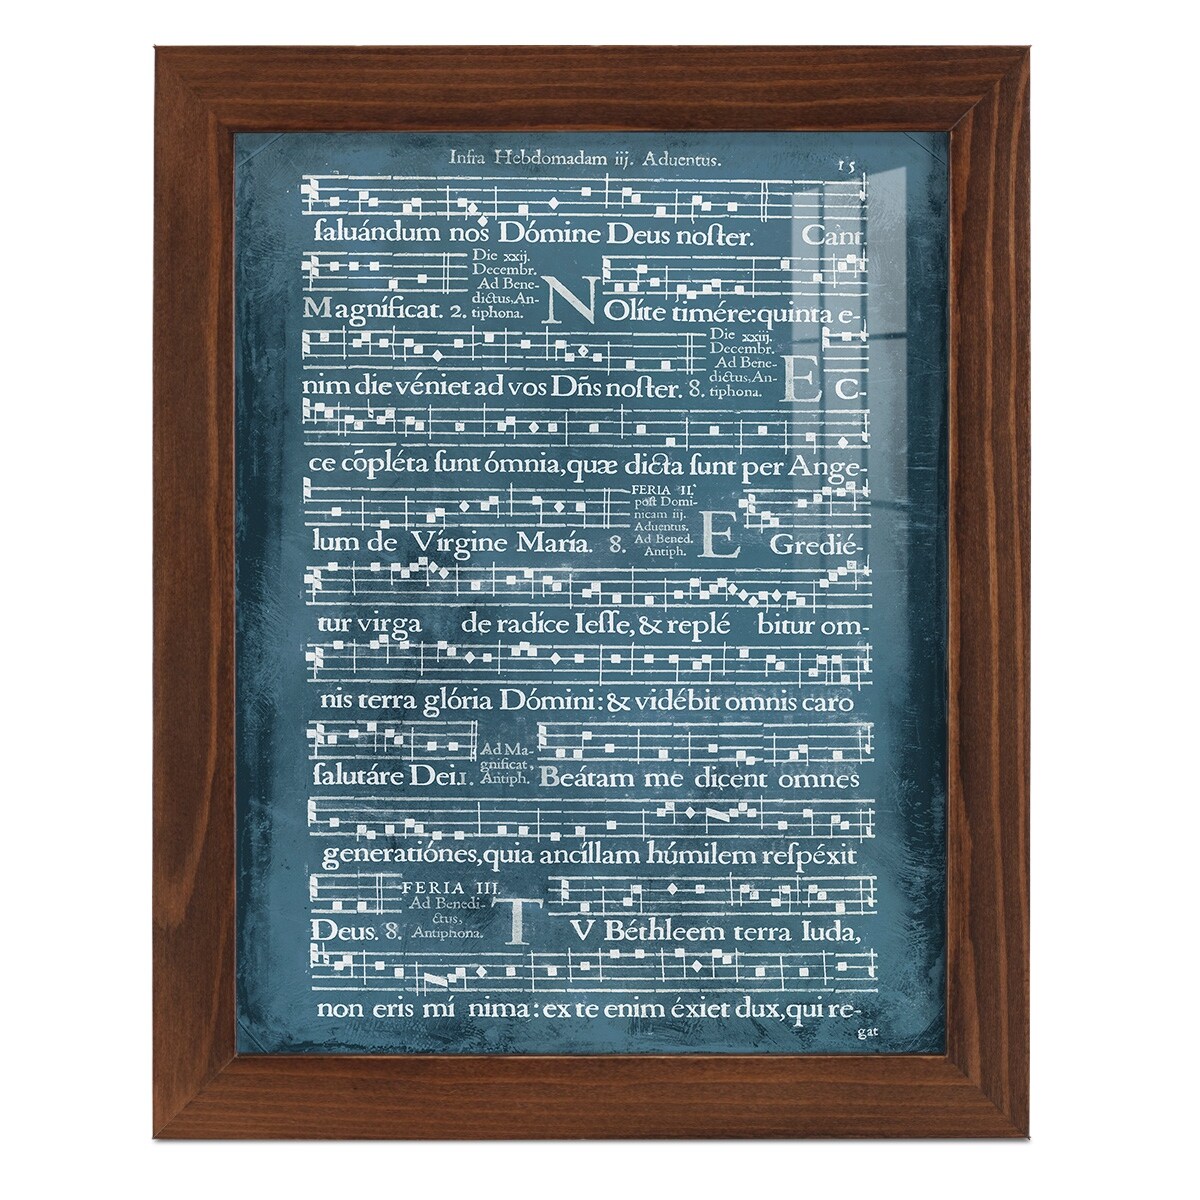 Infra Hebdomadam iij. Aduentus.
15
ſaluándum nos Dómine Deus noſter. Cant.
Die xxij.
Decembr.
Ad Bene-
dictus. An-
tiphona.
Magníficat. 2.
NOlíte timére: quinta e-
nim die véniet ad vos Dn̄s noſter. 8.
Die xxiij.
Decembr.
Ad Bene-
dictus. An-
tiphona.
EC-
ce cõpléta ſunt ómnia, quæ dicta ſunt per Ange-
lum de Vírgine María. 8.
FERIA II.
poſt Domi-
nicam iij.
Aduentus.
Ad Bened.
Antiph.
EGredié-
tur virga de radíce Ieſſe, & replé bitur om-
nis terra glória Dómini: & vidébit omnis caro
ſalutáre Dei. 1.
Ad Ma-
gnificat,
Antiph.
Beátam me dicent omnes
generatiónes, quia ancíllam húmilem reſpéxit
Deus. 8.
FERIA III.
Ad Benedi-
ctus,
Antiphona.
TV Béthleem terra Iuda,
non eris mí nima: ex te enim éxiet dux, qui re-
gat